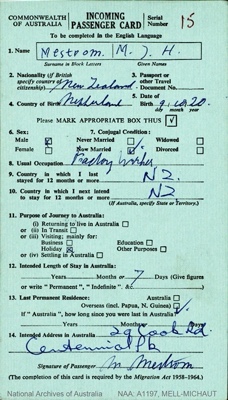 COMMONWEALTH OF AUSTRALIA
INCOMING PASSENGER CARD
Serial Number 15
To be completed in the English Language
1. Name Mestrom M. J. H.
Surname in Block Letters Given Names
2. Nationality (if British specify country of citizenship) New Zealand
3. Passport or other Travel Document No.
4. Country of Birth Nederland
5. Date of Birth 9.10.20.
day month year
Please MARK APPROPRIATE BOX THUS √
6. Sex: 7. Conjugal Condition:
Male Never Married Widowed
Female Now Married Divorced
8. Usual Occupation Factory worker
9. Country in which I last stayed for 12 months or more NZ.
10. Country in which I next intend to stay for 12 months or more NZ
(If Australia, specify State or Territory.)
11. Purpose of Journey to Australia:
(i) Returning to live in Australia
or (ii) In Transit
or (iii) Visiting; mainly for:
Business Education
Holiday Other Purposes
or (iv) Settling in Australia
12. Intended Length of Stay in Australia:
Years Months or 7 Days (Give figures
or write "Permanent", "Indefinite". &c.)
13. Last Permanent Residence: Australia
Overseas (incl. Papua, N. Guinea)
If "Australia", how long since you were last in Australia?
Years Months Days
14. Intended Address in Australia 29 Cook Rd.
Centennial Pk
Signature of Passenger M Mestrom
(The completion of this card is required by the Migration Act 1958-1964).
National Archives of Australia NAA: A1197, MELL-MICHAUT